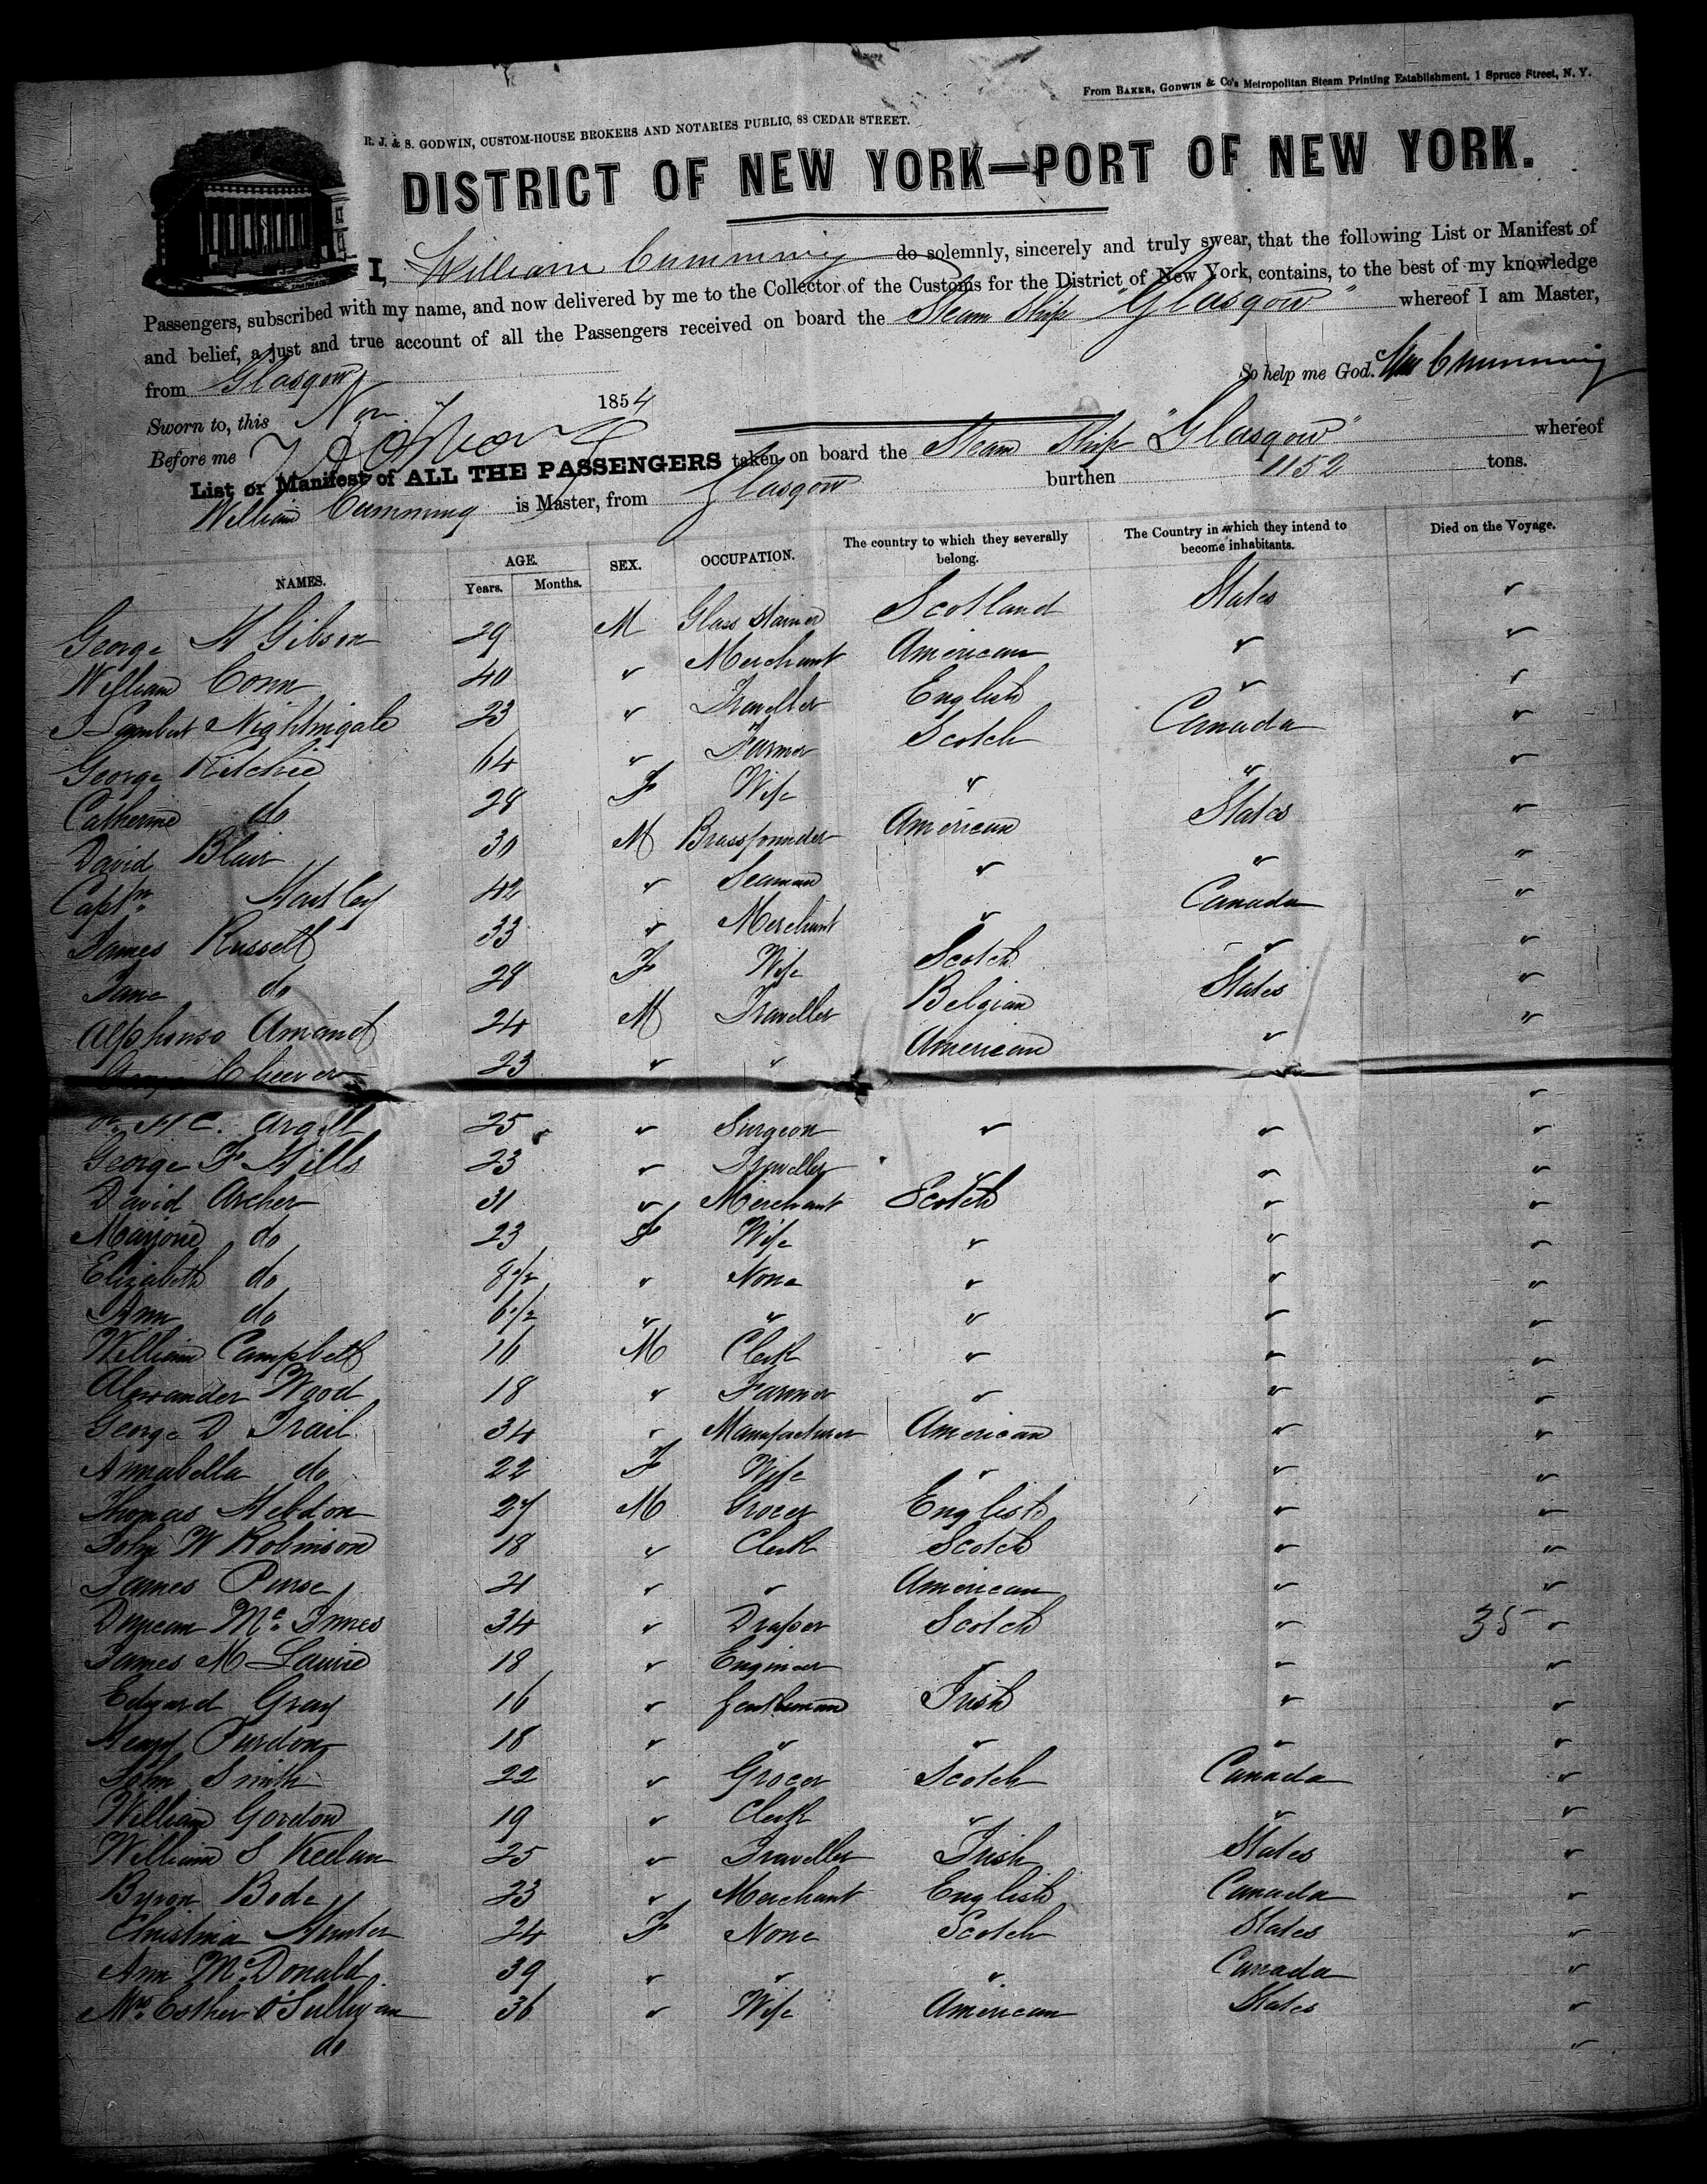 From BAKER, GODWIN & Co's Metropolitan Steam Printing Establishment, 1 Spruce Street, N. Y.
R. J. & S. GODWIN, CUSTOM-HOUSE BROKERS AND NOTARIES PUBLIC, 88 CEDAR STREET.
DISTRICT OF NEW YORK—PORT OF NEW YORK.
I, William Cumming do solemnly, sincerely and truly swear, that the following List or Manifest of
Passengers, subscribed with my name, and now delivered by me to the Collector of the Customs for the District of New York, contains, to the best of my knowledge
and belief, a just and true account of all the Passengers received on board the Steam Ship "Glasgow" whereof I am Master,
from Glasgow
So help me God. Wm Cumming
Sworn to, this Nov 1854
Before me
List or Manifest of ALL THE PASSENGERS taken on board the Steam Ship "Glasgow" whereof
William Cumming is Master, from Glasgow burthen 1152 tons.
NAMES. AGE. Years. Months. SEX. OCCUPATION. The country to which they severally belong. The Country in which they intend to become inhabitants. Died on the Voyage.
George H Gibson 29 M Glass Stainer Scotland States "
William Conn 40 " Merchant American " "
Lambert Nightingale 23 " Traveller English " "
George Ritchie 64 " Farmer Scotch Canada "
Catherine do 28 F Wife " " "
David Blair 30 M Brassfounder American States "
Captn. Hartley 42 " Seaman " " "
James Russell 33 " Merchant " Canada "
Jane do 28 F Wife Scotch " "
Alphonso Amand 24 M Traveller Belgian States "
Cheever 23 " " American " "
H C. Argill 25 " Surgeon " " "
George F Hills 23 " Traveller " " "
David Archer 31 " Merchant Scotch " "
Marjorie do 23 F Wife " " "
Elizabeth do 8 1/2 " None " " "
Ann do 6 1/2 " " " " "
William Campbell 16 M Clerk " " "
Alexander Wood 18 " Farmer " " "
George D Trail 34 " Manufacturer American " "
Annabella do 22 F Wife " " "
Thomas Hebdon 27 M Grocer English " "
John W Robinson 18 " Clerk Scotch " "
James Purse 21 " " American " "
Duncan Mc. Innes 34 " Draper Scotch " 35 "
James M Laurie 18 " Engineer " " "
Edward Gray 16 " Gentleman Irish " "
Henry Purdon 18 " " " " "
John Smith 22 " Grocer Scotch Canada "
William Gordon 19 " Clerk " " "
William S Keelan 25 " Traveller Irish States "
Byron Bode 23 " Merchant English Canada "
Christina Hunter 24 F None Scotch States "
Ann McDonald 39 " " " Canada "
Mrs. Esther O'Sullivan 36 " Wife American States "
do "